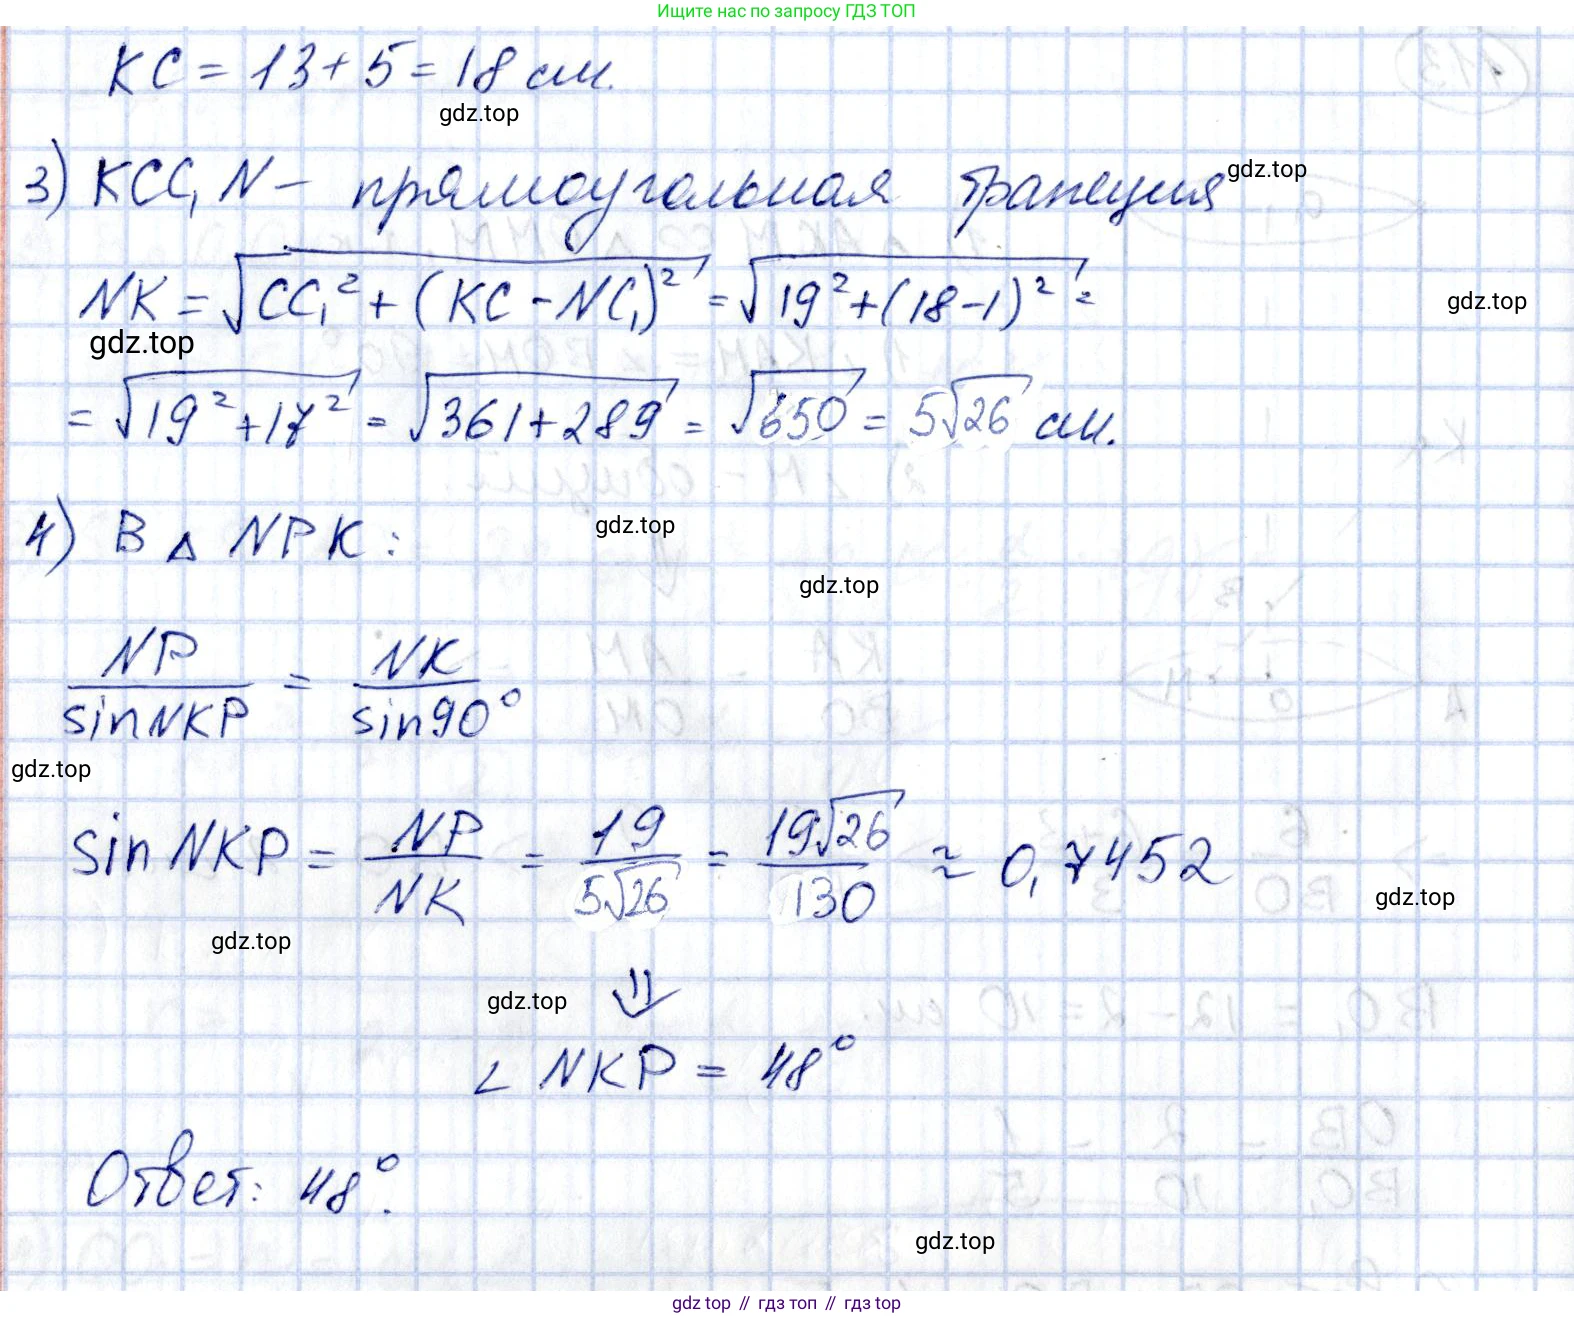 Ищите нас по запросу ГДЗ ТОП
KC = 13 + 5 = 18 см.
gdz.top
3) KCC₁N – прямоугольная трапеция
gdz.top
gdz.top
NK = √(CC₁² + (KC - NC₁)²) = √(19² + (18-1)²) =
gdz.top
= √(19² + 17²) = √(361 + 289) = √650 = 5√26 см.
4) В △ NPK:
gdz.top
gdz.top
NP/sinNKP = NK/sin90°
gdz.top
sin NKP = NP/NK = 19/5√26 = 19√26/130 ≈ 0,7452
gdz.top
gdz.top
gdz.top
⇓
∠ NKP = 48°
Ответ: 48°.
gdz.top
gdz top // гдз топ // гдз top